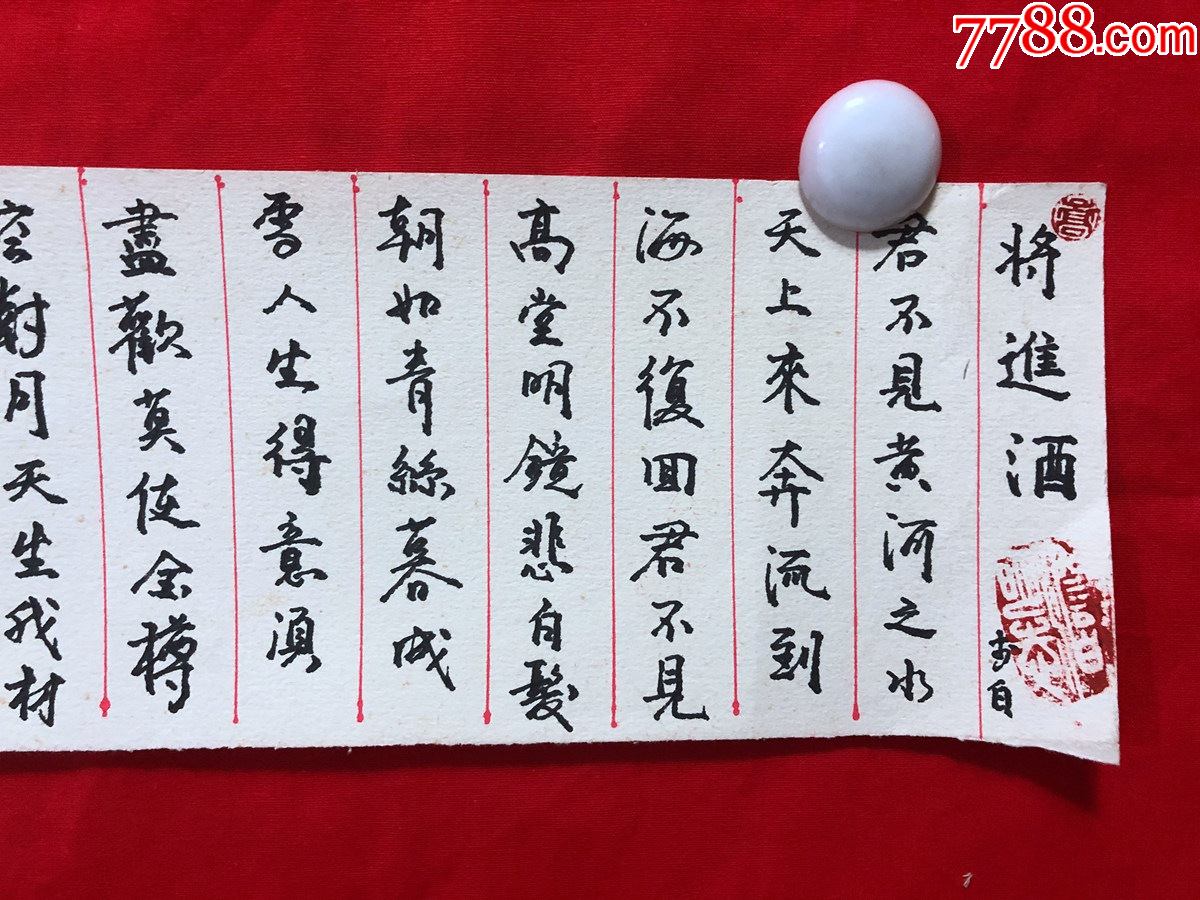 7788.com
将進酒
李白
君不見黄河之水
天上來奔流到
海不復回君不見
高堂明鏡悲白髮
朝如青絲暮成
雪人生得意須
盡歡莫使金樽
空對月天生我材